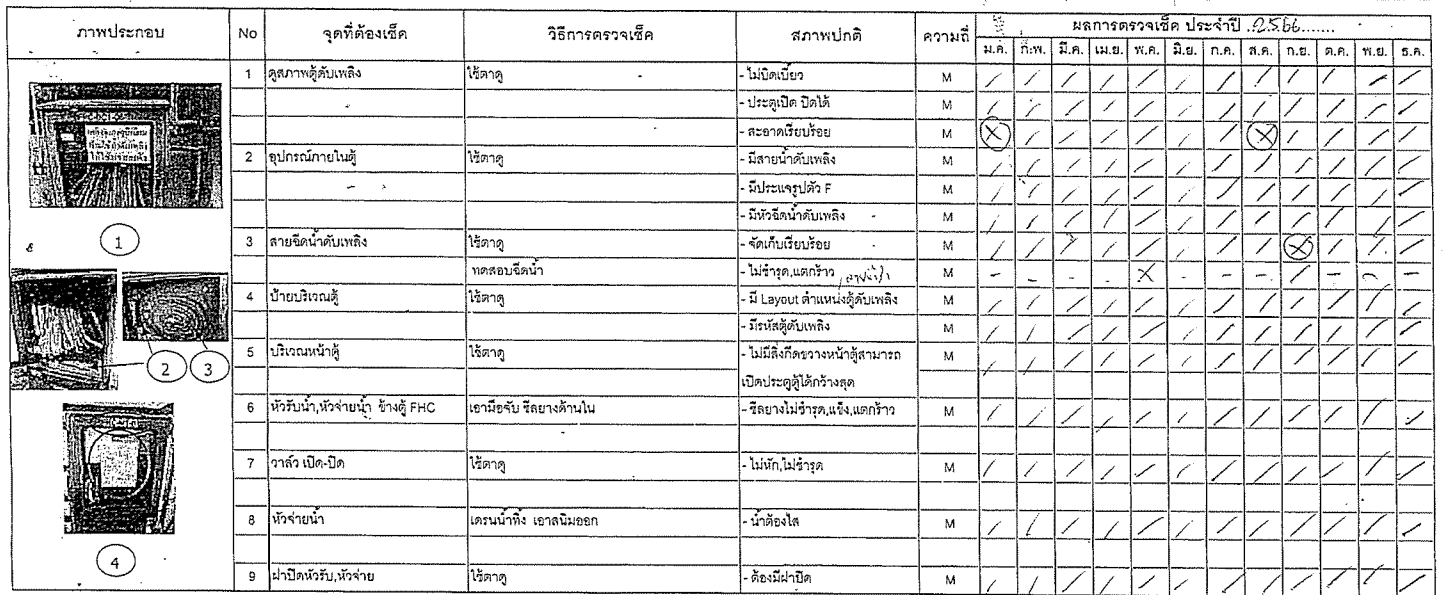 ภาพประกอบ No จุดที่ต้องเช็ค วิธีการตรวจเช็ค สภาพปกติ ความถี่ ผลการตรวจเช็ค ประจำปี ..2566.......
ม.ค. ก.พ. มี.ค. เม.ย. พ.ค. มิ.ย. ก.ค. ส.ค. ก.ย. ต.ค. พ.ย. ธ.ค.
1 ดูสภาพตู้ดับเพลิง ใช้ตาดู - ไม่บิดเบี้ยว M / / / / / / / / / / / /
- ประตูเปิด ปิดได้ M / / / / / / / / / / / /
- สะอาดเรียบร้อย M X / / / / / / X / / / /
2 อุปกรณ์ภายในตู้ ใช้ตาดู - มีสายน้ำดับเพลิง M / / / / / / / / / / / /
- มีประแจรูปตัว F M / / / / / / / / / / / /
- มีหัวฉีดน้ำดับเพลิง M / / / / / / / / / / / /
1
3 สายฉีดน้ำดับเพลิง ใช้ตาดู - จัดเก็บเรียบร้อย M / / / / / / / / X / / /
ทดสอบฉีดน้ำ - ไม่ชำรุด,แตกร้าว M - - - - X - - - / - - -
4 ป้ายบริเวณตู้ ใช้ตาดู - มี Layout ตำแหน่งตู้ดับเพลิง M / / / / / / / / / / / /
- มีรหัสตู้ดับเพลิง M / / / / / / / / / / / /
2 3
5 บริเวณหน้าตู้ ใช้ตาดู - ไม่มีสิ่งกีดขวางหน้าตู้สามารถ M / / / / / / / / / / / /
เปิดประตูตู้ได้กว้างสุด
6 หัวรับน้ำ,หัวจ่ายน้ำ ข้างตู้ FHC เอามือจับ ซีลยางด้านใน - ซีลยางไม่ชำรุด,แข็ง,แตกร้าว M / / / / / / / / / / / /
7 วาล์ว เปิด-ปิด ใช้ตาดู - ไม่หัก,ไม่ชำรุด M / / / / / / / / / / / /
8 หัวจ่ายน้ำ เดรนน้ำทิ้ง เอาสนิมออก - น้ำต้องใส M / / / / / / / / / / / /
4
9 ฝาปิดหัวรับ,หัวจ่าย ใช้ตาดู - ต้องมีฝาปิด M / / / / / / / / / / / /